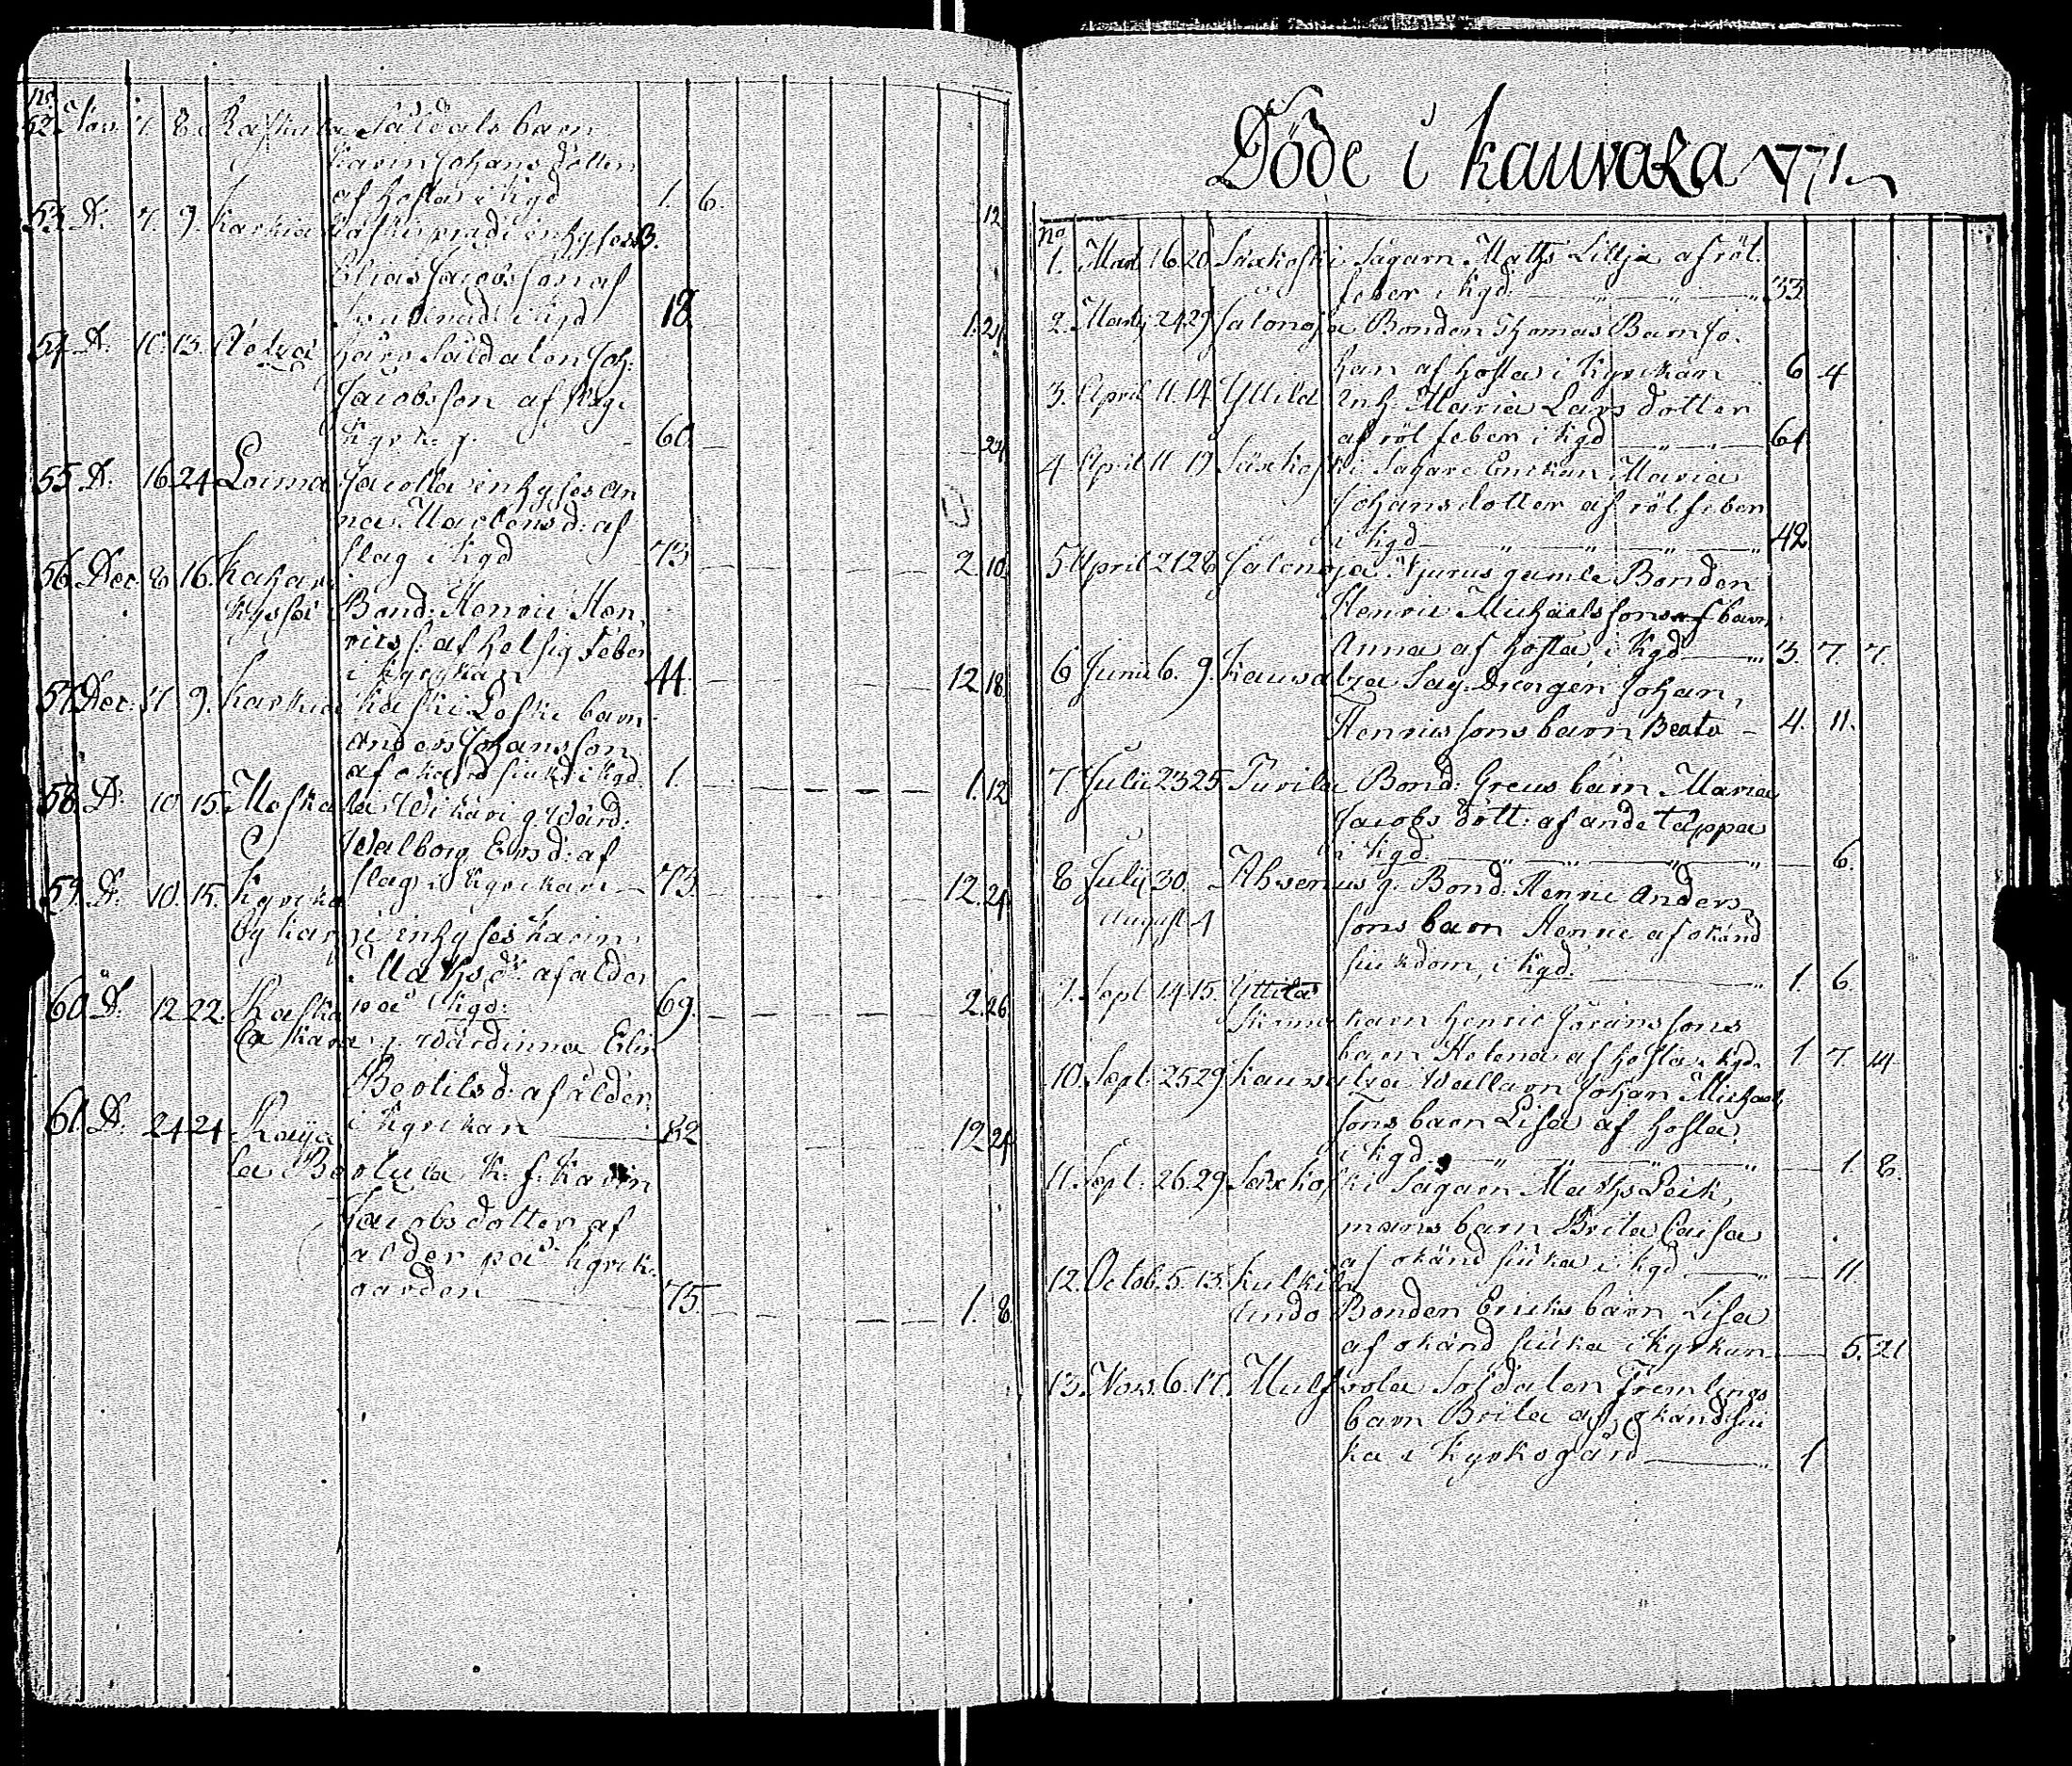 no
52. Nov. 7. 8. Raskala Såldats barn
Karin Johans dotter
af hosta i kgd 1. 6. 12
53. D: 7. 9. Karkia
Elias Jacobs son af
i kgd 18 1. 24
54. D. 10. 13. Såldaten Joh:
Jacobs son af slag i
kyrk. g. 60. 24
55 D. 16 24 Loima inhyses An
na Mårtens d: af
slag i kgd 73 2. 10
56. Dec. 8 16. Kahari
Bond: Henric Hen
rics s: af hetsig feber
i kyrckan 44. 12. 18
57. Dec: 7. 9. Karkia barn
Anders Johans son
af okänd siukd i kgd. 1. 1. 12
58. D. 10. 15. Wikari g. Värd:
Walborg Ersd: af
slag i kyrckan 73. 12. 24
59. D. 10. 15. Kyrcko
by inhyses Karin
Mathsd: af ålder
på kgd: 69. 2. 26
60. D. 12. 22. Raska
la g. Värdinna Elin
Bertilsd: af ålder
i kyrckan 82 12. 24
61. D. 24. 24
la K. f. Karin
Jacobs dotter af
ålder på kyrck
gården 75. 1. 8.
Döde i kauvaza 1771
no
1. Mart 16. 20 Säxkoski Sågarn Maths Lillja af röt
feber i kgd 33
2. Marty 24. 29 Salonoja Bonden Thomas Barn Jo
han af hosta i kyrckan 6 4
3. April 11. 14. Yttilä Inh: Maria Lars dotter
af röt feber i kgd 64
4. April 11 19 Säxkoski Sågare Enckan Maria
Johans dotter af röt feber
i kgd 42
5 April 21 28 Salonoja Yjurus gamle Bonden
Henric Michaels sons barn
Anna af hosta i kgd 3. 7. 7.
6 Junii 6. 9. Kauvatza Såg. Drengen Johan
Henrics sons barn Beata 4. 11.
7 Julii 23 25 Purila Bond: Greus barn Maria
Jacobs dott: af andetäppa
i kgd. 6.
8 Julij 30. Ahvenus g. Bond. Henric Anders
August 4 sons barn Henric af okänd
siukdom, i kgd. 1. 6.
9. Sept 14 15. Yttilä
Henric Jörans sons
barn Helena af hosta i kgd. 1 7. 14
10. Sept. 25 29 Kauvatza Wallarn Johan Michaels
sons barn Lisa af hosta
i kgd. 1 8.
11. Sept: 26. 29 Säxkoski Sågarn Maths Leik
mans barn Brita Caisa
af okänd siuka i kgd 11
12. Octob. 5. 13. Kulkila
Undo Bonden Erichs barn Lisa
af okänd siuka i kyrckan 5. 21
13. Nov. 6. 17. Soldaten Fremlings
barn Brita af okänd siu
ka i kyrkogård 1